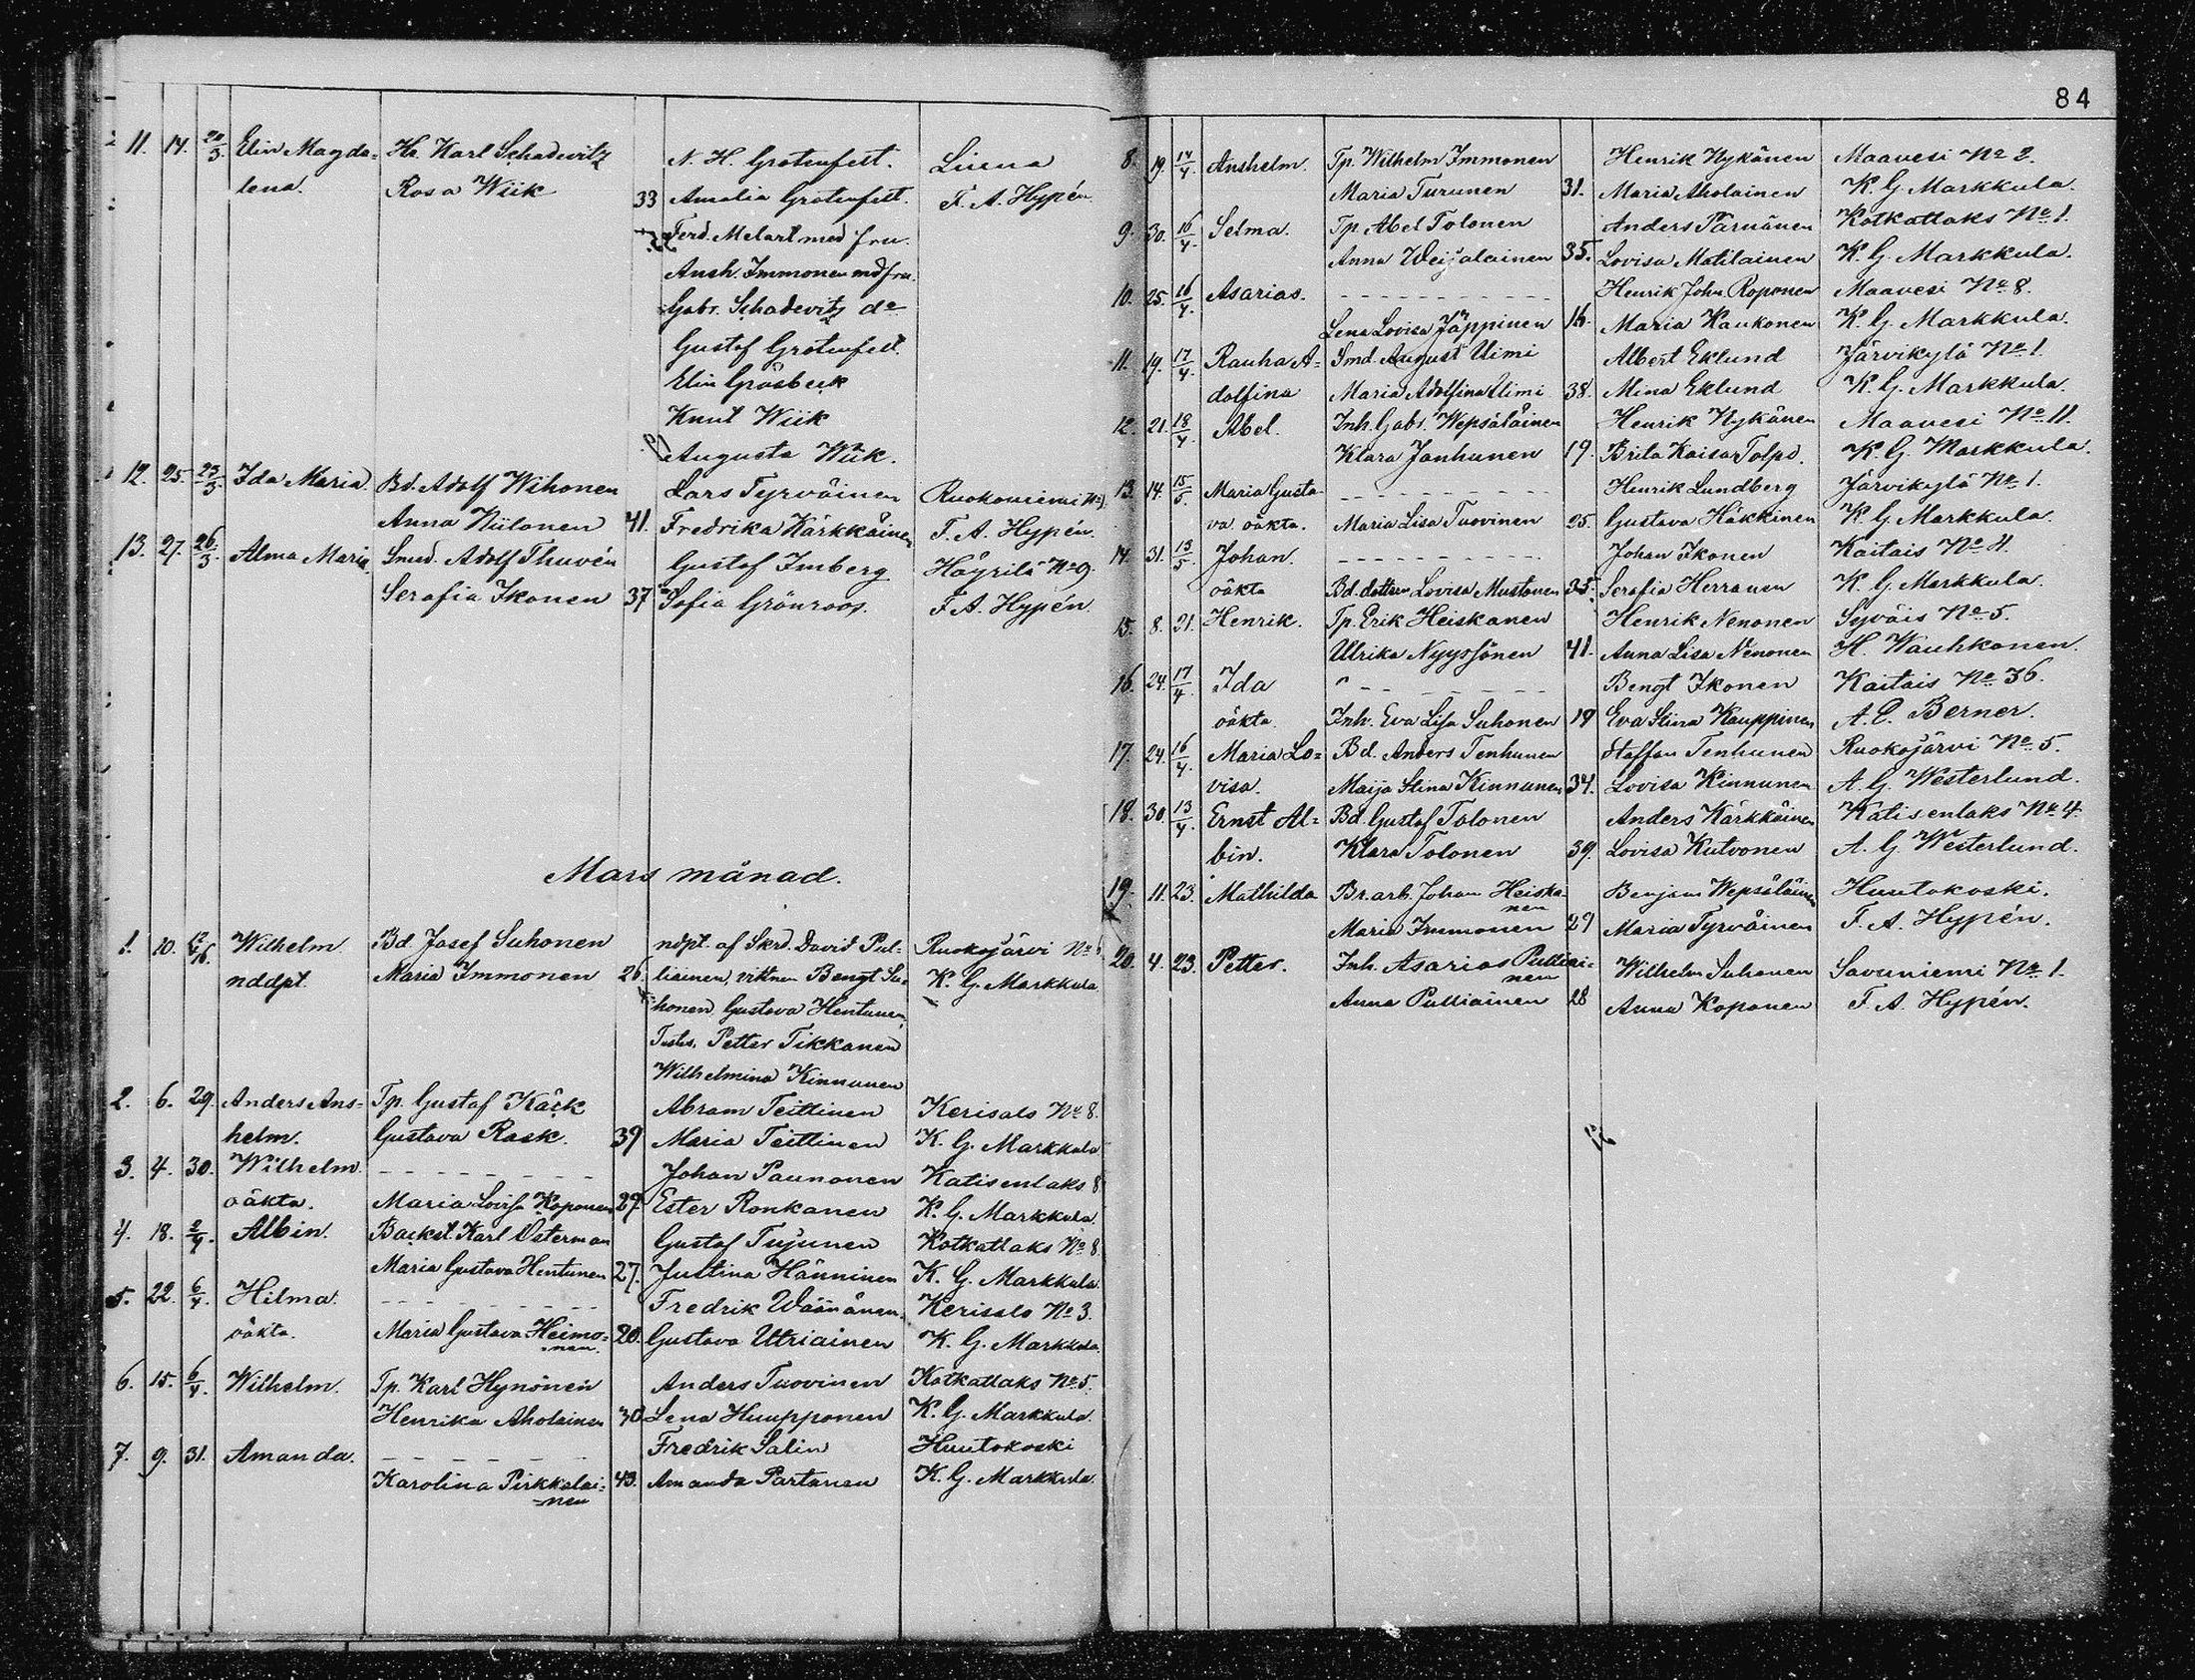 11. 14. 20/3. Elin Magda= Hr. Karl Schadevitz N. H. Grotenfelt. Liuna
lena. Rosa Wiik 33 Amalia Grotenfelt. F. A. Hypén.
Ferd. Melart med fru.
Ansh. Immonen md fru.
Gabr. Schadevitz do
Gustaf Grotenfelt.
Elin Gräsbeck
Knut Wiik
Augusta Wiik.
12. 25. 25/3. Ida Maria. Bd. Adolf Wihonen Lars Tyrväinen Ruokoniemi No
Anna Niilonen 41. Fredrika Kärkkäinen F. A. Hypén.
13. 27. 26/3. Alma Maria. Smed. Adolf Thuvén Gustaf Imberg Häyrilä No 9.
Serafia Ikonen 37 Sofia Grönroos. F. A. Hypén.
Mars månad.
1. 10. Wilhelm Bd. Josef Suhonen ndpt. af Skrd. David Pul- Ruokojärvi No
nddpt. Maria Immonen 26. liainen, vittnen Bengt Su- K. G. Markkula
honen, Gustava Hentunen,
Testes, Petter Tikkanen
Wilhelmina Kinnunen
2. 6. 29. Anders Ans= Tp. Gustaf Käck Abram Teittinen Kerisalo No 8.
helm. Gustava Rask. 39 Maria Teittinen K. G. Markkula
3. 4. 30. Wilhelm. - - - - - - - Johan Paunonen Katisenlaks 8
oäkta. Maria Lovisa Koponen 29. Ester Ronkanen K. G. Markkula.
4. 18. 2/4. Albin. Backst. Karl Österman Gustaf Tujunen Kotkatlaks No 8.
Maria Gustava Hentunen 27. Justina Hänninen K. G. Markkula.
5. 22. 6/4. Hilma. - - - - - - - Fredrik Wäänänen. Kerisalo No 3.
oäkta. Maria Gustava Heimo= 20. Gustava Utriainen K. G. Markkula.
nen.
6. 15. 6/4. Wilhelm. Tp. Karl Hynönen Anders Tuovinen Kotkatlaks No 5.
Henrika Aholainen 30 Lena Huupponen K. G. Markkula.
7. 9. 31. Amanda. - - - - - - - Fredrik Salin Huutokoski
Karolina Pirkkalai= 43. Amanda Partanen K. G. Markkula.
=nen
84
8. 19. 14/4. Anshelm. Tp. Wilhelm Immonen Henrik Nykänen Maavesi No 2.
Maria Turunen 31. Maria Aholainen K. G. Markkula.
9. 30. 16/4. Selma. Tp. Abel Tolonen Anders Pärnänen Kotkatlaks No 1.
Anna Weijalainen 35. Lovisa Matilainen K. G. Markkula.
10. 25. 16/4. Asarias. - - - - - - - Henrik Joh. Roponen Maavesi No 8.
Lena Lovisa Jäppinen 16. Maria Kaukonen K. G. Markkula.
11. 19. 17/4. Rauha A= Smd. August Uimi Albert Eklund Järvikylä No 1.
dolfina Maria Adolfina Uimi 38. Mina Eklund K. G. Markkula.
12. 21. 18/4. Abel. Inh. Gabr. Wepsäläinen Henrik Nykänen Maavesi No 11.
Klara Janhunen 19. Brita Kaisa Tolpo. K. G. Markkula.
13. 14. 15/5. Maria Gusta- - - - - - - - Henrik Lundberg Järvikylä No 1.
va oäkta. Maria Lisa Tuovinen 25. Gustava Häkkinen K. G. Markkula.
14. 31. 13/5. Johan. - - - - - - - Johan Ikonen Kaitais No 11.
oäkta Bd. dotter Lovisa Mustonen 35. Serafia Herranen K. G. Markkula.
15. 8. 21. Henrik. Tp. Erik Heiskanen Henrik Nenonen Syväis No 5.
Ulrika Nyyssönen 41. Anna Lisa Nenonen H. Wauhkonen.
16. 24. 17/4. Ida - - - - - - - Bengt Ikonen Kaitais No 36.
oäkta. Inh. Eva Lisa Suhonen 19 Eva Stina Kauppinen A. E. Berner.
17. 24. 16/4. Maria Lo= Bd. Anders Tenhunen Staffan Tenhunen Ruokojärvi No 5.
visa. Maija Stina Kinnunen 34. Lovisa Kinnunen A. G. Westerlund.
18. 30. 13/4. Ernst Al= Bd. Gustaf Tolonen Anders Kärkkäinen Katisenlaks No 4.
bin. Klara Tolonen 39. Lovisa Kutvonen A. G. Westerlund.
19. 11. 23. Mathilda Br.arb. Johan Heiska- Benjam Wepsäläinen Huutokoski.
nen
Maria Immonen 29 Maria Tyrväinen F. A. Hypén.
20. 4. 23. Petter. Inh. Asarias Pulliai= Wilhelm Suhonen Savuniemi No 1.
nen
Anna Pulliainen 28 Anna Koponen F. A. Hypén.